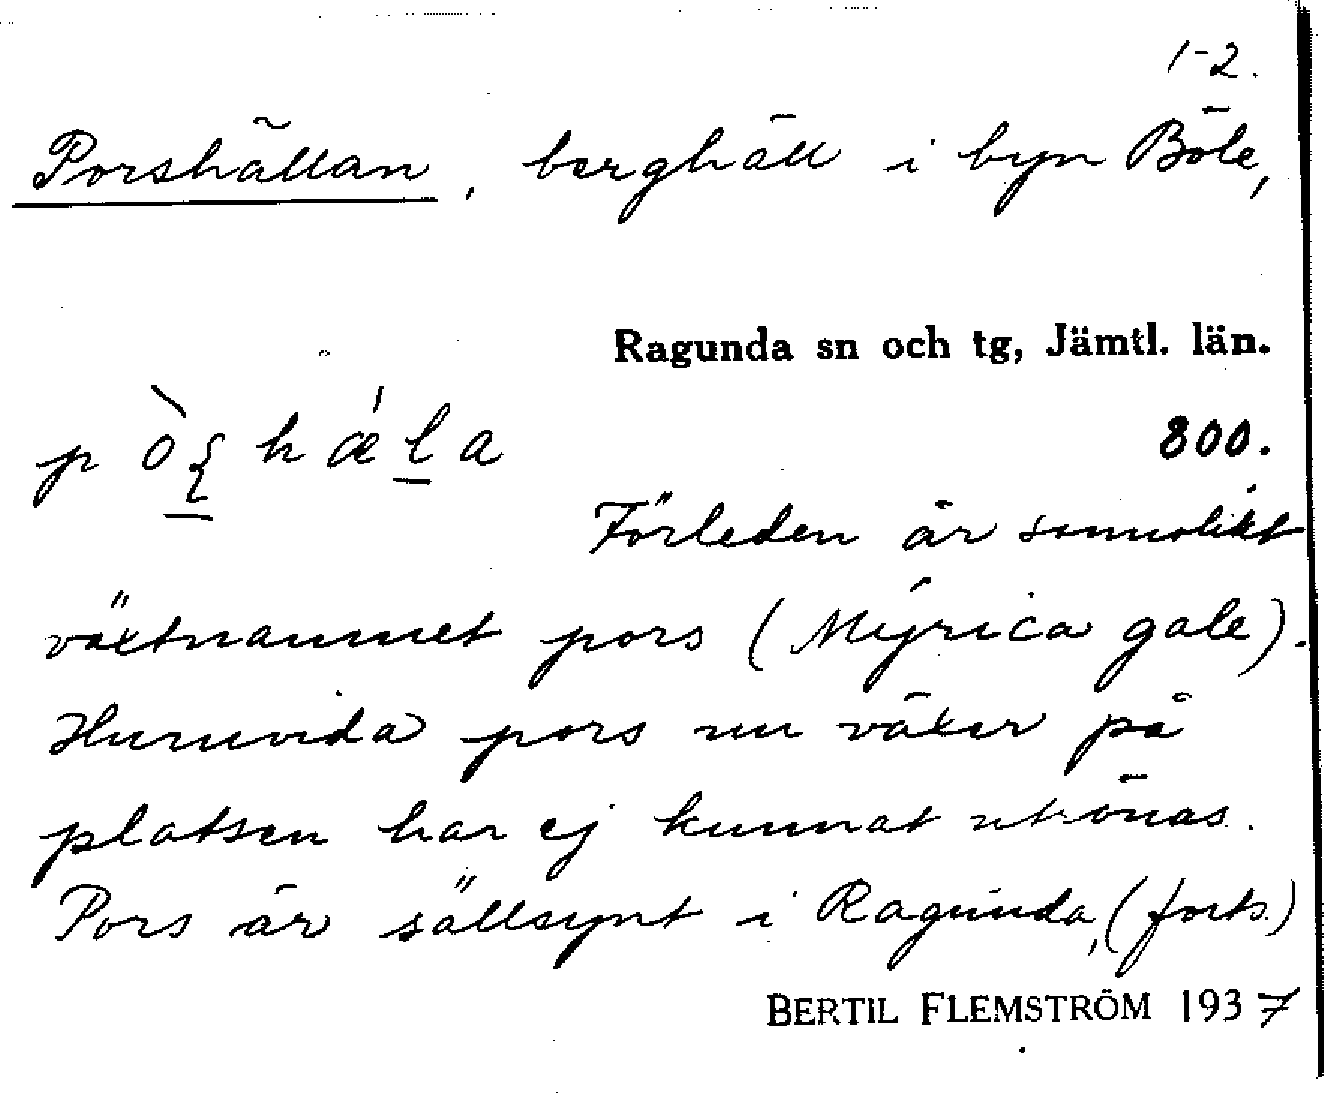 1-2.
Porshällan, berghäll i byn Böle,
Ragunda sn och tg, Jämtl. län.
800.
Förleden är sannolikt
växtnamnet pors (Myrica gale).
Huruvida pors nu växer på
platsen har ej kunnat utrönas.
Pors är sällsynt i Ragunda, (forts.)
BERTIL FLEMSTRÖM 1937